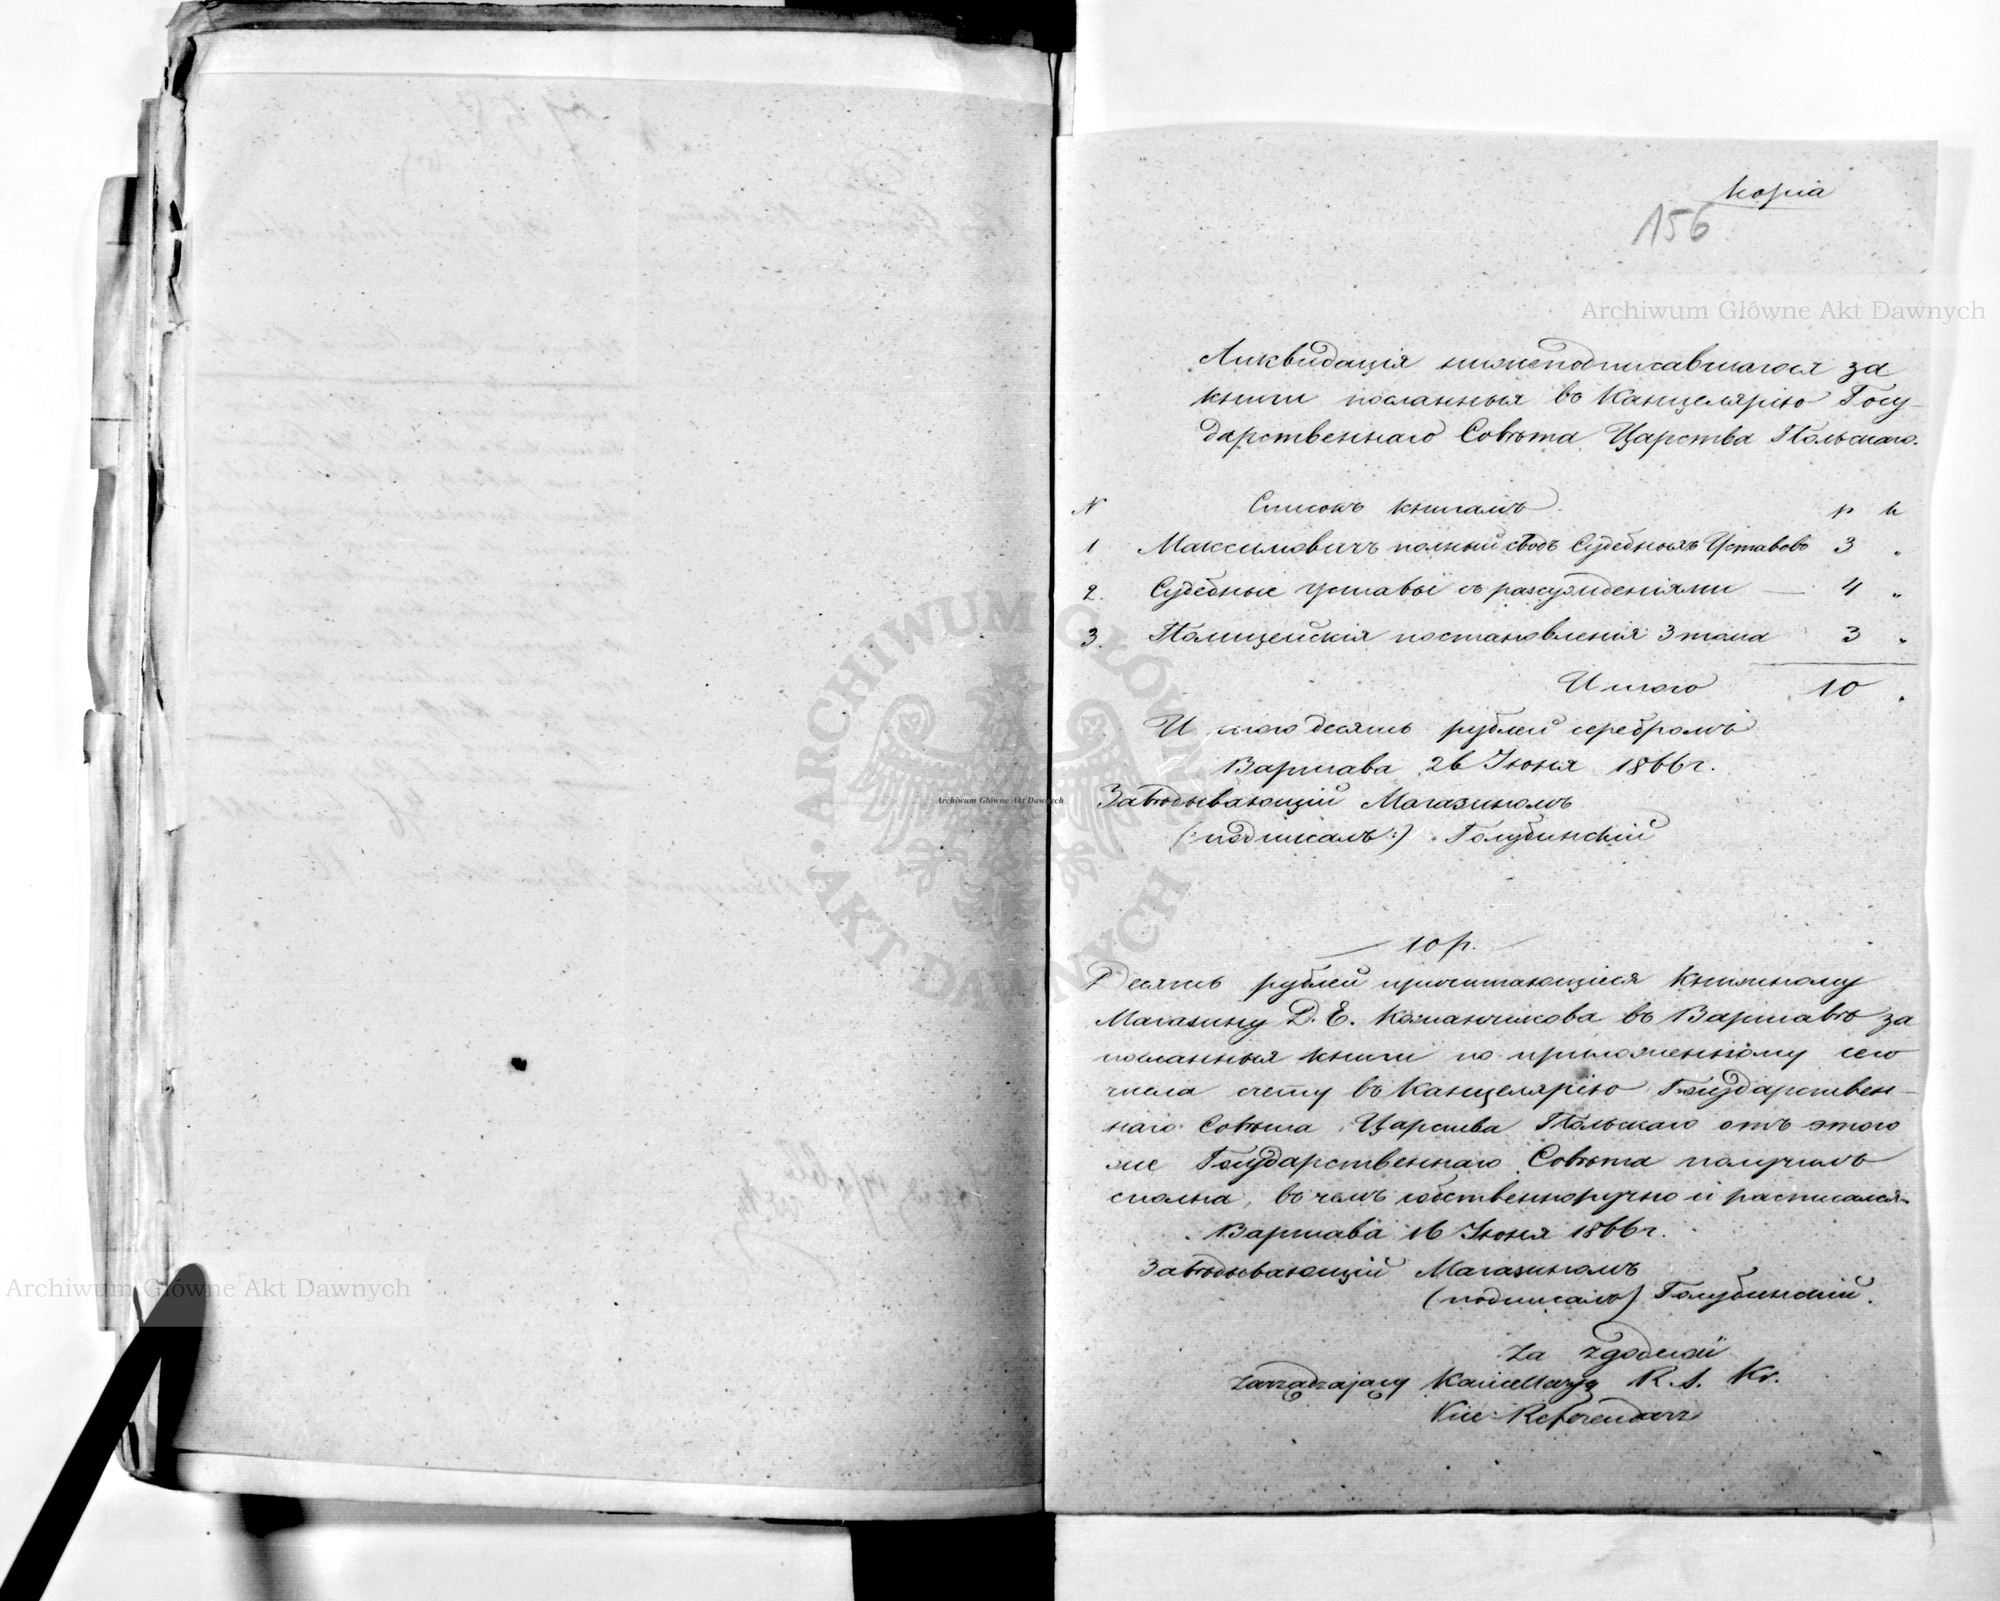 Копія
156
Ликвидація нижеподписавшагося за
книги посланныя въ Канцелярію Госу-
дарственнаго Совѣта Царства Польскаго.
N Списокъ книгамъ р к
1 Максимовичъ полный сводъ Судебныхъ Уставовъ 3 "
2. Судебные уставы съ разсужденіями — 4 "
3. Полицейскія постановленія 3 тома 3 "
Итого 10 "
Итого десять рублей серебромъ
Варшава 26 Іюня 1866 г.
Завѣдывающій Магазиномъ
(:подписалъ:) Голубинскій
10 р.
Десять рублей причитающіеся Книжному
Магазину Д. Е. Кожанчикова въ Варшавѣ за
посланныя книги по приложенному сего
числа счету въ Канцелярію Государствен-
наго Совѣта Царства Польскаго отъ этого
же Государственнаго Совѣта получилъ
сполна, въ чемъ собственноручно и расписался
Варшава 16 Іюня 1866 г.
Завѣдывающій Магазиномъ
(подписалъ) Голубинскій.
Za zgodność
Zarządzający Kancellaryą R. S. Kr.
Vice-Referendarz
Archiwum Główne Akt Dawnych
Archiwum Główne Akt Dawnych
Archiwum Główne Akt Dawnych
ARCHIWUM GŁÓWNE AKT DAWNYCH